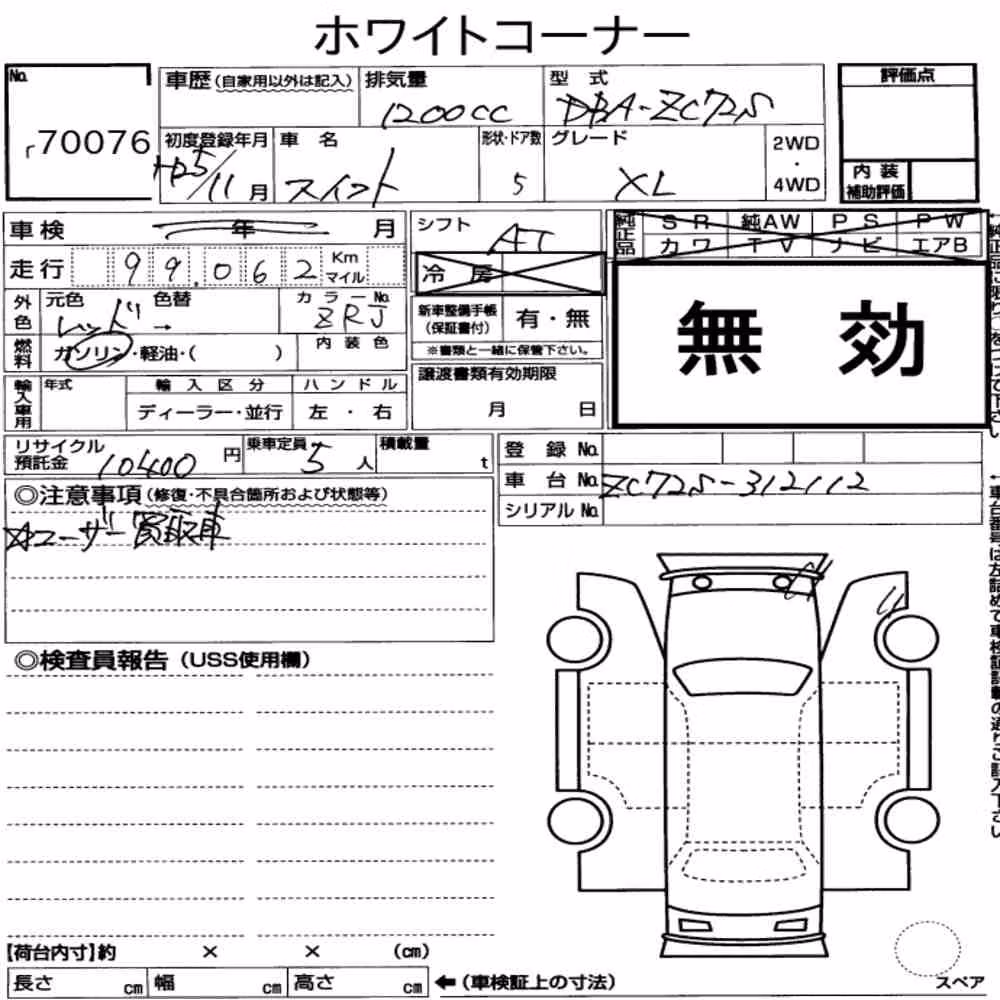 ホワイトコーナー
No.
70076
車歴(自家用以外は記入) 排気量 1200cc 型式 DBA-ZC72S 評価点
初度登録年月 H25/11月 車名 スイフト 形状・ドア数 5 グレード XL 2WD・4WD 内装補助評価
車検 年 月 シフト AT 純正品 SR 純AW PS PW
カワ TV ナビ エアB
走行 99,062 Km マイル 冷房
外色 元色 レッド 色替 → カラーNo. ZRJ 新車整備手帳(保証書付) 有・無 無効
燃料 ガソリン・軽油・( ) 内装色 ※書類と一緒に保管下さい。
輸入車用 年式 輸入区分 ハンドル 譲渡書類有効期限
ディーラー・並行 左・右 月 日
リサイクル預託金 10400円 乗車定員 5人 積載量 t 登録No.
車台No. ZC72S-312112
シリアルNo.
◎注意事項(修復・不具合箇所および状態等)
☆ユーザー買取車
◎検査員報告(USS使用欄)
【荷台内寸】約 × × (cm)
長さ cm 幅 cm 高さ cm ←(車検証上の寸法)
スペア